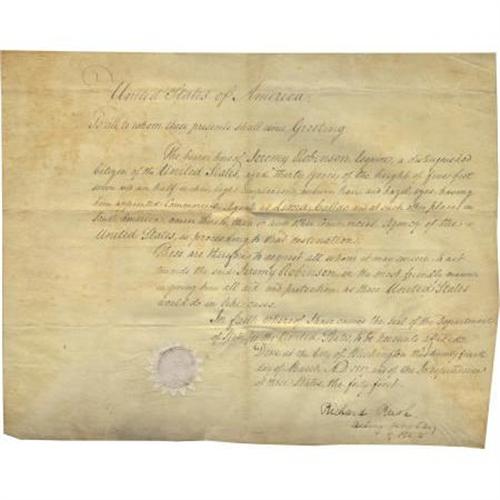 United States of America,
To all to whom these presents shall come Greeting
The bearer hereof Jeremy Robinson Esquire, a distinguished
Citizen of the United States, aged Thirty years, of the height of five feet
seven and an half inches, light complexion, auburn hair and hazel eyes, having
been appointed Commercial Agent at Lima, Callao and at such other places in
South America
United States, is proceeding to that destination.
These are therefore to request all whom it may concern to act
towards the said Jeremy Robinson in the most friendly manner
in giving him all aid and protection as these United States
would do in like cases.
In faith whereof I have caused the seal of the Department
of State for the United States, to be hereunto affixed.
Done at the City of Washington this twenty first
day of March A.D. 1817 and of the Independence
of these States, the forty first.
Richard Rush
Acting Secretary
of State